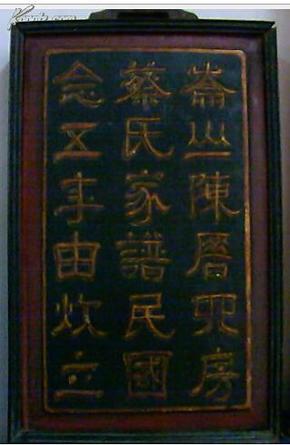 崙山陳厝四房
蔡氏家譜民國
念五年由炊立